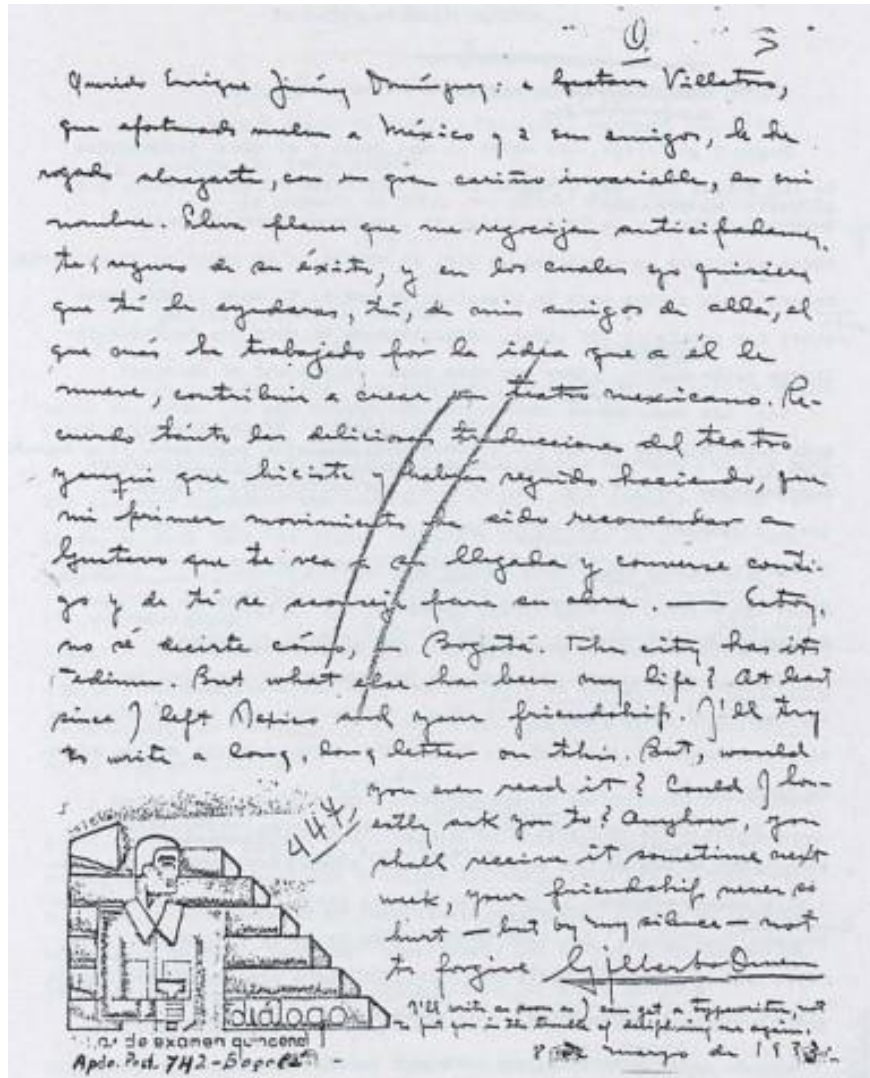 Querido Enrique Jiménez Domínguez: a Gustavo Villatoro,
que afortunado vuelve a México y a sus amigos, le he
rogado abrazarte, con un gran cariño invariable, en mi
nombre. Lleva planes que me regocijan anticipadamen-
te, seguro de su éxito, y en los cuales yo quisiera
que tú le ayudaras, tú, de mis amigos de allá, el
que más ha trabajado por la idea que a él le
mueve, contribuir a crear un teatro mexicano. Re-
cuerdo tánto las deliciosas traducciones del teatro
yanqui que hiciste y habrás seguido haciendo, que
mi primer movimiento ha sido recomendar a
Gustavo que te vea a su llegada y converse conti-
go y de tí se aconseje para su obra. — Estoy,
no sé decirte cómo, en Bogotá. The city has its
tedium. But what else has been my life? At least
since I left Mexico and your friendship. I'll try
to write a long, long letter on this. But, would
you even read it? Could I hon-
estly ask you to? Anyhow, you
shall receive it sometime next
week, your friendship never so
hurt — but by my silence — not
to forgive Gilberto Owen
I'll write as soon as I can get a typewriter, not
to put you in the trouble of deciphering me again.
mayo de 193
447
diálogo
de examen quincenal
Apdo. Post. 742 - Bogotá